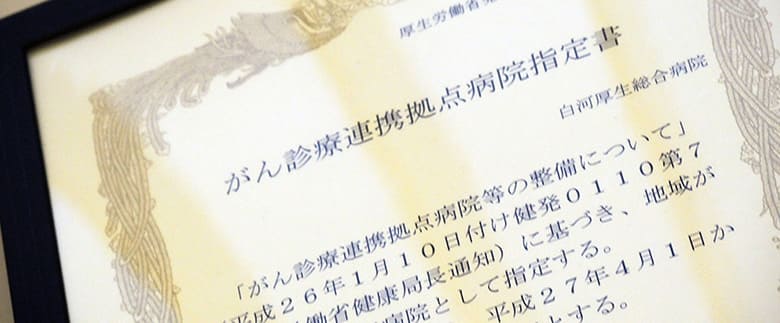 厚生労働省発
がん診療連携拠点病院指定書
白河厚生総合病院
「がん診療連携拠点病院等の整備について」
平成26年1月10日付け健発0110第7
働省健康局長通知)に基づき、地域が
病院として指定する。
平成27年4月1日か
とする。